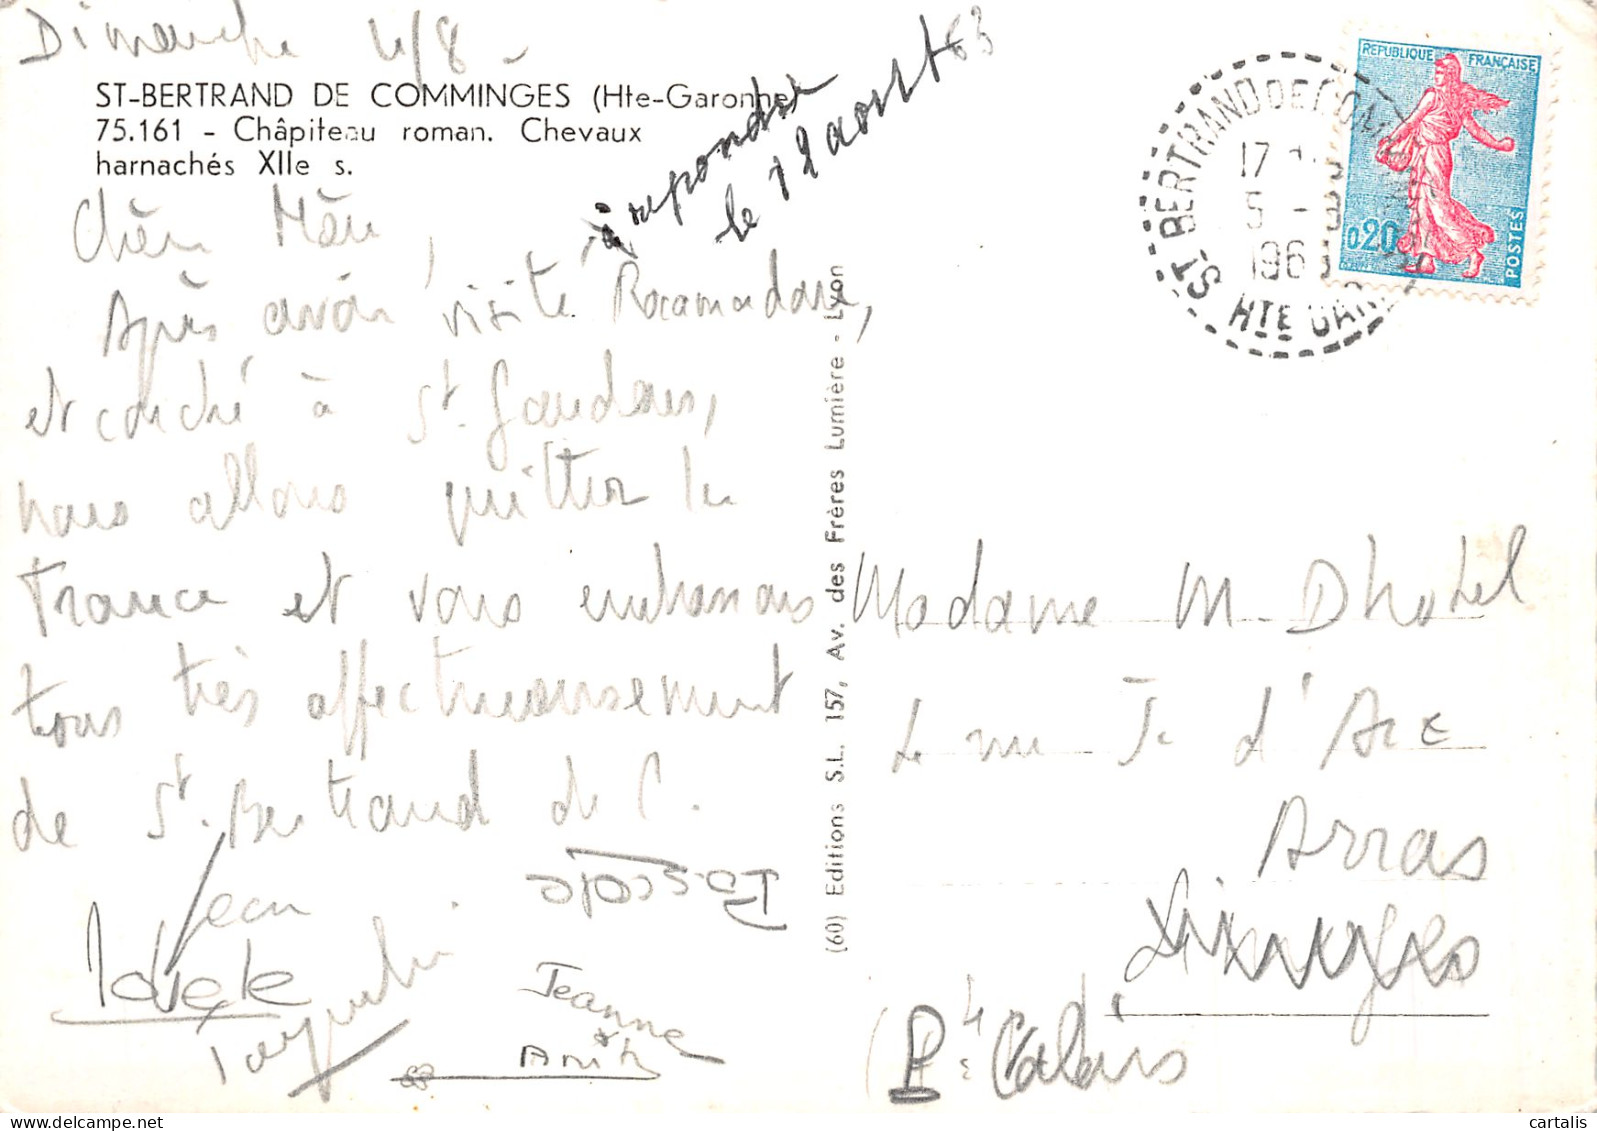 Dimanche 4/8 -
ST-BERTRAND DE COMMINGES (Hte-Garonne)
75.161 - Châpiteau roman. Chevaux
harnachés XIIe s.
à repondre
le 12 aout 63
Chère Mère,
Après avoir visité Rocamadour,
et couché à St. Gaudens,
nous allons quitter la
France et vous embrassons
tous très affectueusement
de St. Bertrand de C.
Jean
Pascale
Jeanne
(60) Editions S.L. 157, Av. des Frères Lumière - Lyon
REPUBLIQUE FRANÇAISE
0,20
POSTES
ST BERTRAND DE COMM
17
5 - 8
196
HTE GAR
Madame M. Dhotel
rue J. d'Arc
Arras
(P. de Calais
cartalis